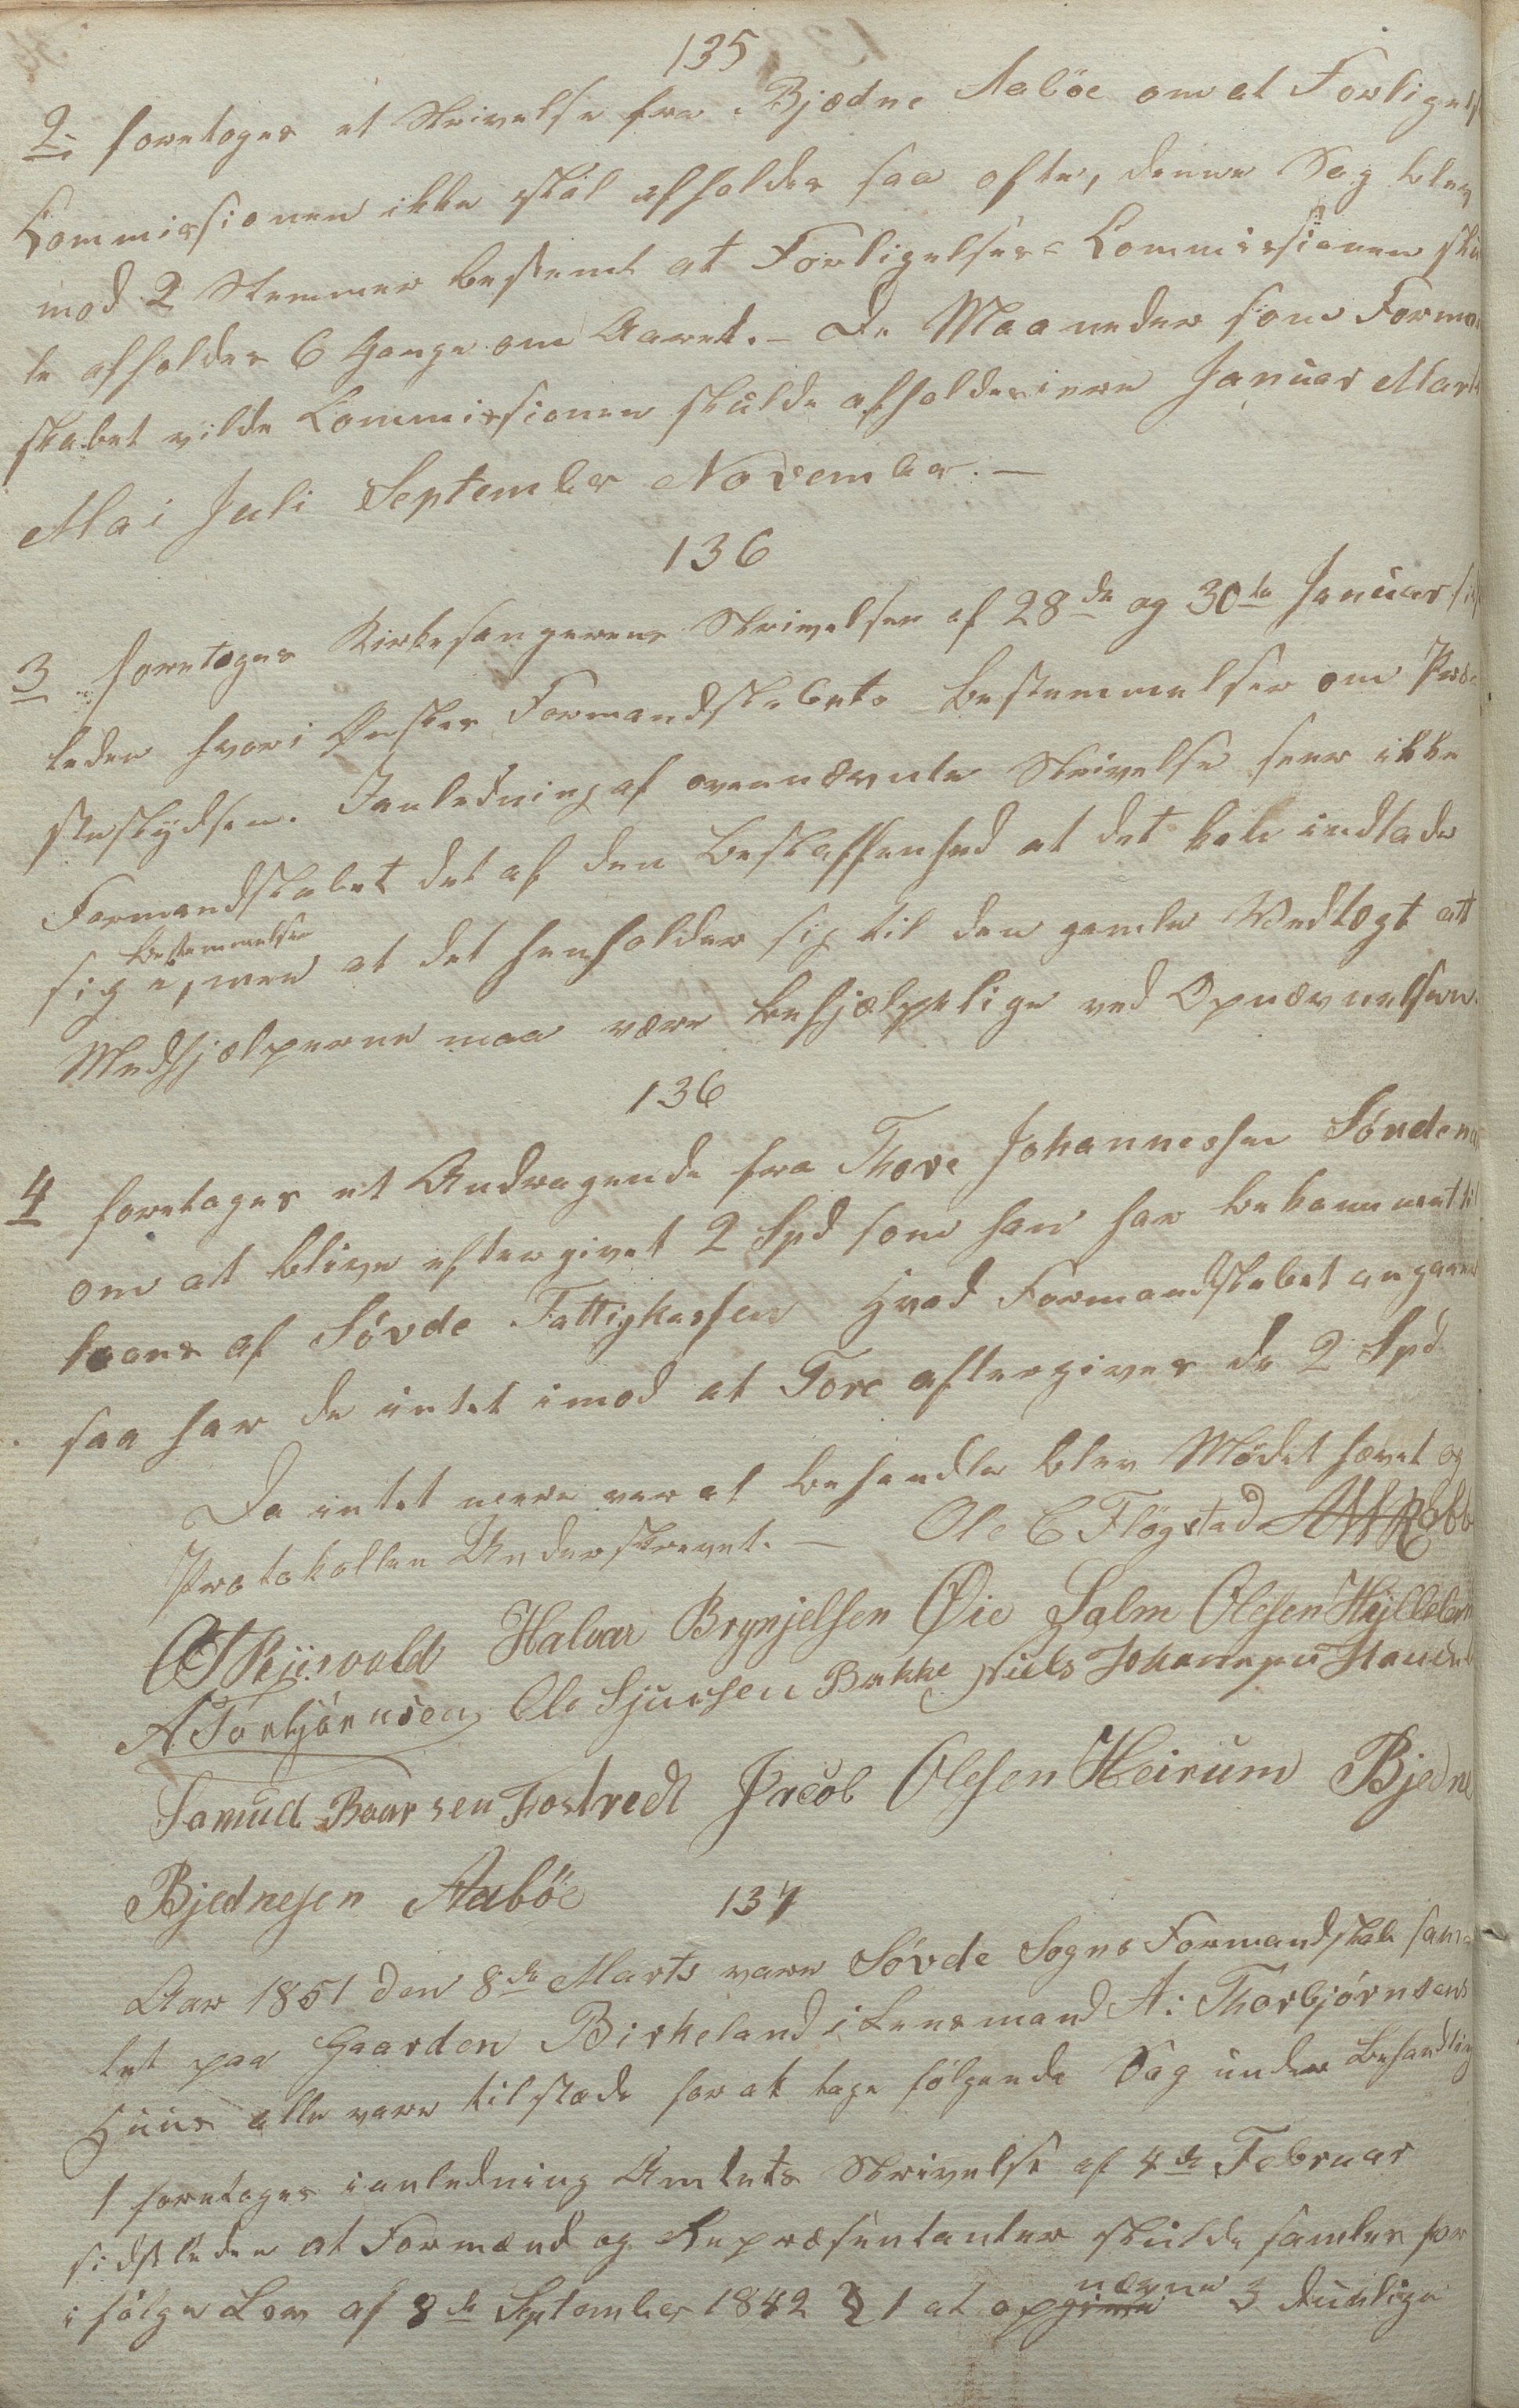 135
2: foretoges et Skrivelse fra Bjedne Aaböe om at Forligels
Commissionen ikke skal afholdes saa ofte, denne Sag blev
mod 2 Stemmer bestemt at Forligelses= Commissionen sku
le afholdes 6 Gange om Aaret. – De Maaneder som Forman
skabet vilde Commissionen skulde afholdes i ere Januar Marts
Mai Juli September November. –
136
3 foretoges Kirkesangerens Skrivelser af 28de og 30te Januar sidst
leden hvori Ønskes Formandskabets Bestemmelser om Præ=
steskydsen. I anledning af ovennævnte Skrivelse seer ikke
Formandskabet det af den Beskaffenhed at det kan indlade
sig i, Bestemmelser men at det henholder sig til den gamle Vedtægt at
Medhjælperne maa være behjælpelige ved Opnævnelsen.
136
4 foretoges et Andragende fra Thore Johannesen Sövdena
om at blive eftergivet 2 Spd som han har bekommet til
laans af Sövde Fattigkassen Hvad Formandskabet angaaer
saa har de intet imod at Tore eftergives de 2 Spd
Da intet mere var at behandle blev Mödet hævet og
Protokollen Underskrevet. – Ole C Flögstad
Halvar Brynjelsen Øie Salm Olesen Hylleland
A Torbjörnsen Ole Sjursen Bakke Niels Johannesen
Samuel Baarsen Fostvedt Jacob Olesen Heirum Bjedne
Bjednesen Aaböe
137
Aar 1851 den 8de Marts vare Sövde Sogns Formandskab sam=
let paa Gaarden Birkeland i Lensmand A: Thorbjörnsens
Huus alle vare tilstæde for at tage fölgende Sag under Behandling
1 foretoges i anledning Amtets Skrivelse af 4de Februar
sidstleden at Formænd og Repræsentanter skulde samles for
i fölge Lov af 8de September 1842 § 1 at opgive nævne 3 duelige